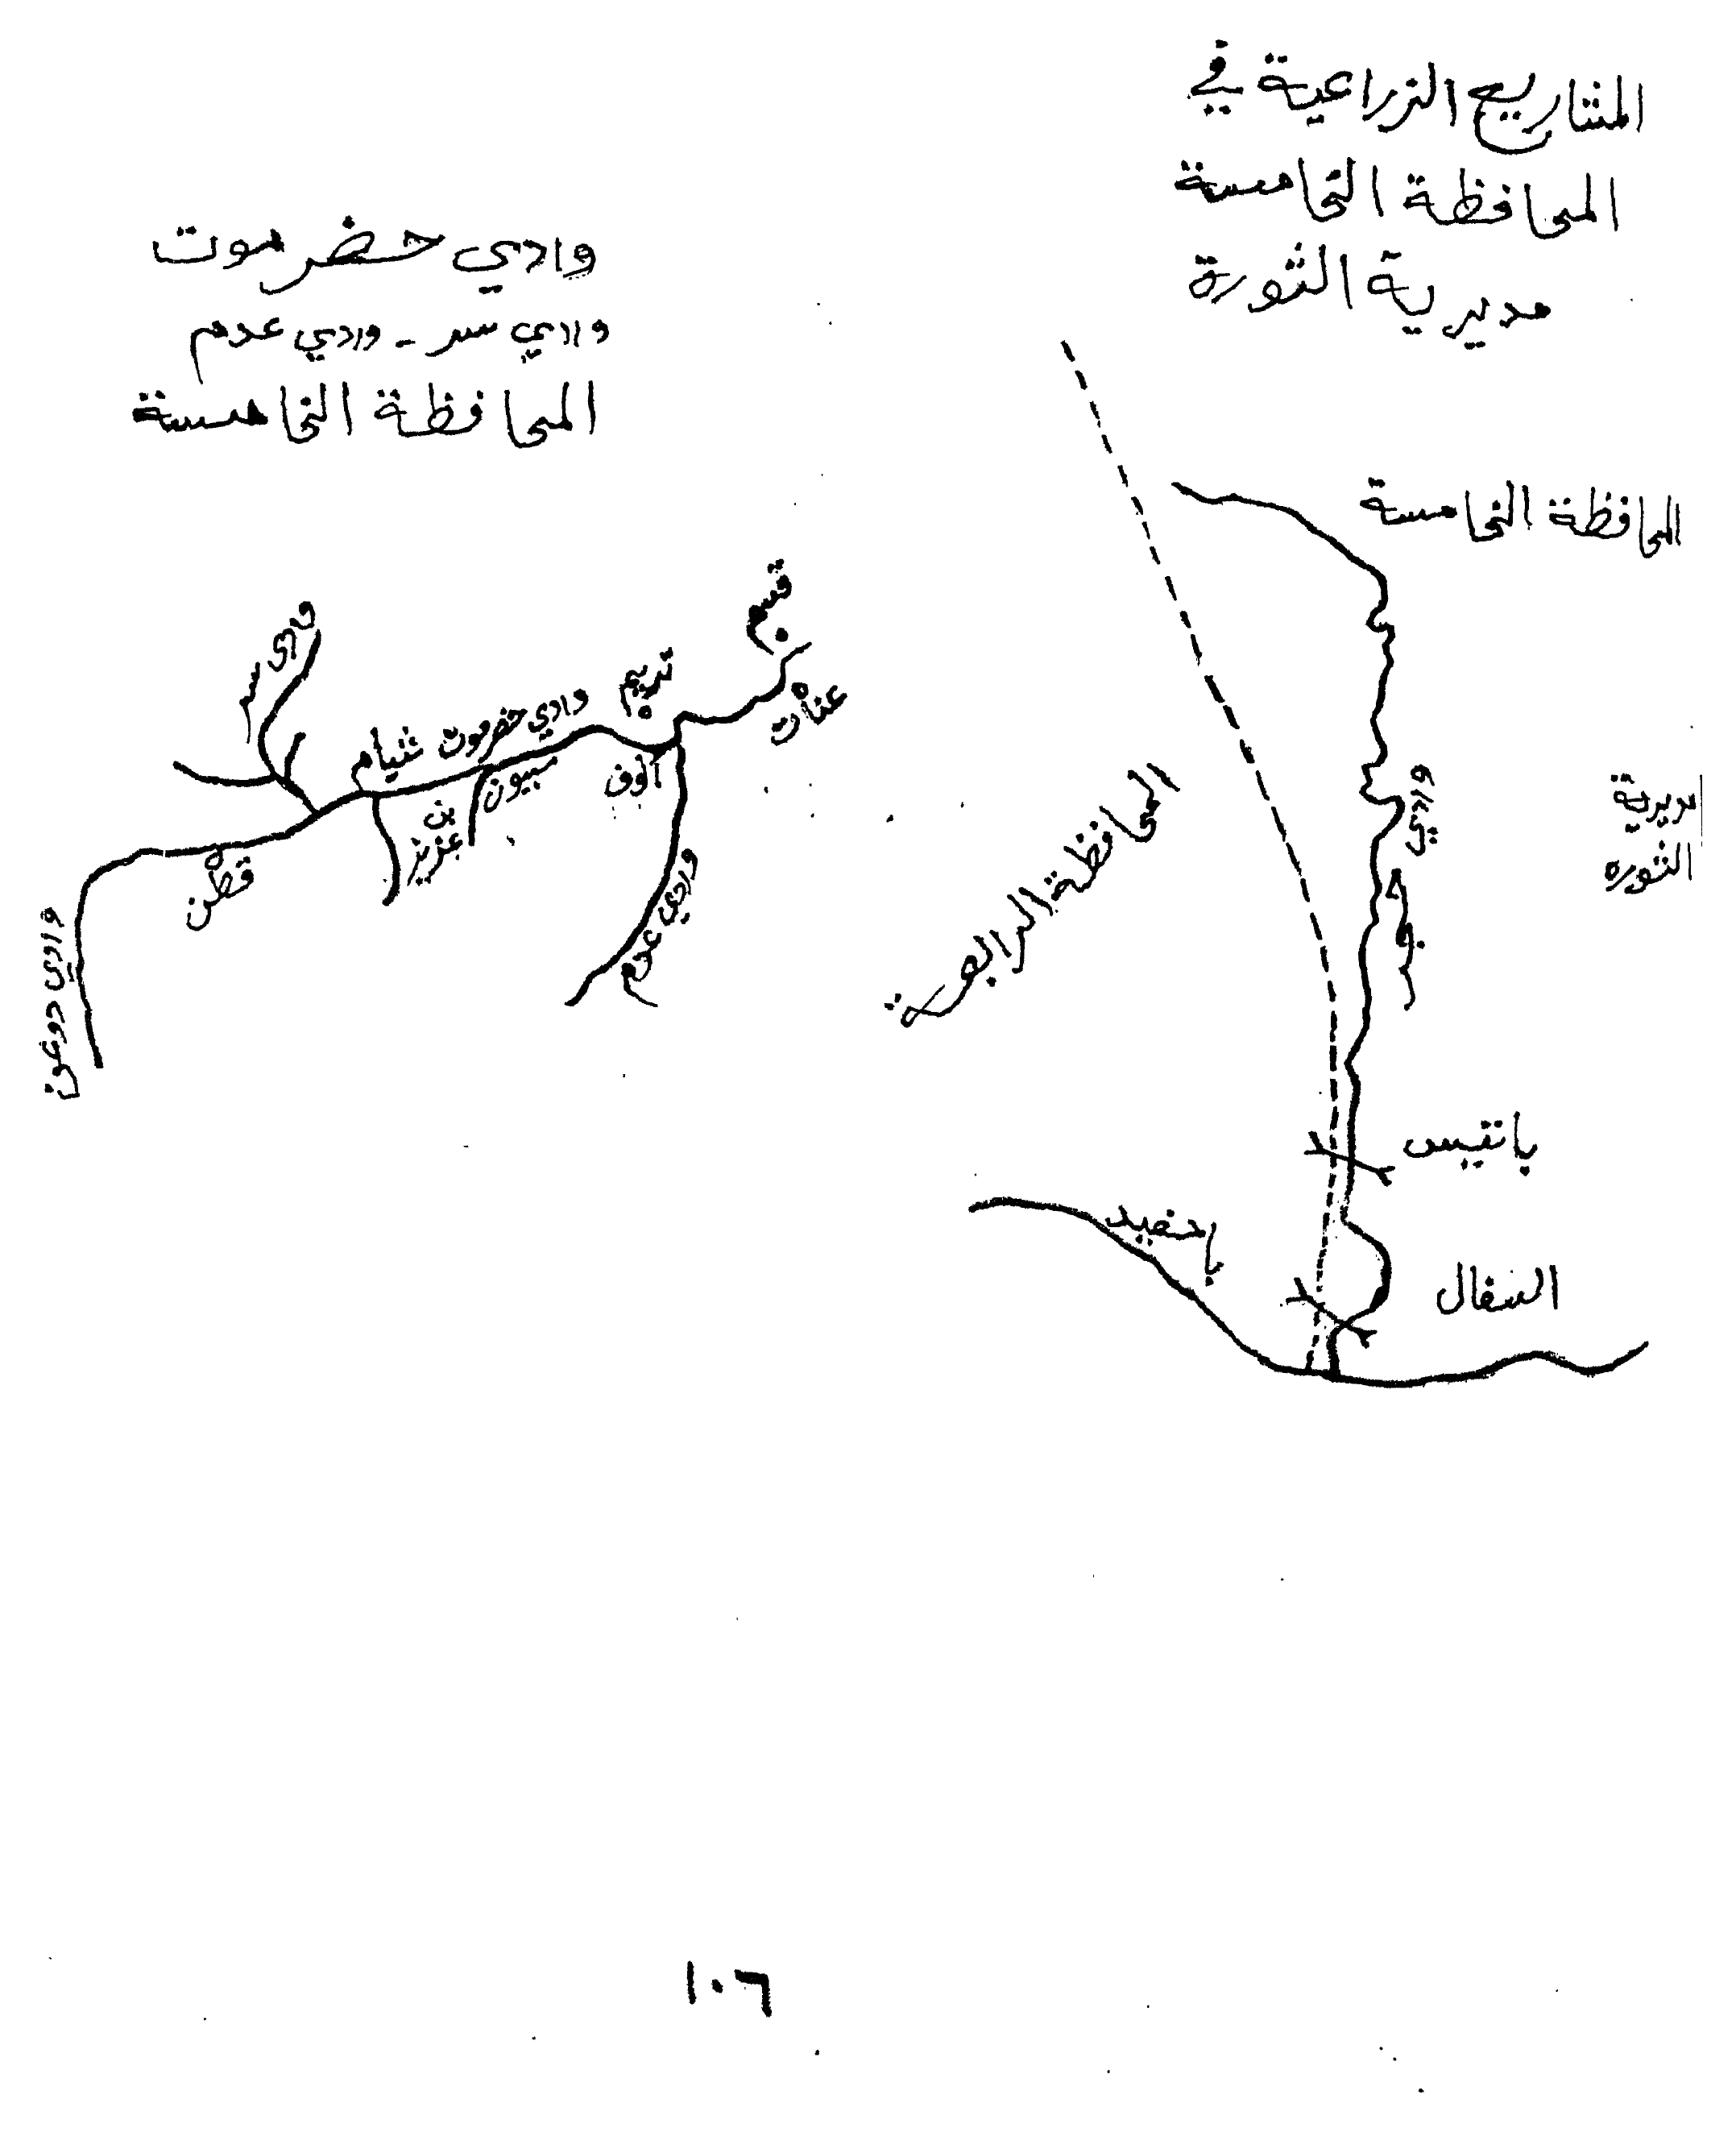 المشاريع الزراعية في
المحافظة الخامسة
مديرية الثورة
المحافظة الخامسة
مديرية
الثوره
وادي
حجر
المحافظة الرابعة
بانتيس
بامفيد
السفال
وادي حضرموت
وادي سر - وادي عدم
المحافظة الخامسة
قسم
عنات
تريم
وادي حضرموت
شبام
سيون
بن
عزيز
وادي عدم
وادي
سر
قطن
وادي دوعن
١٠٦